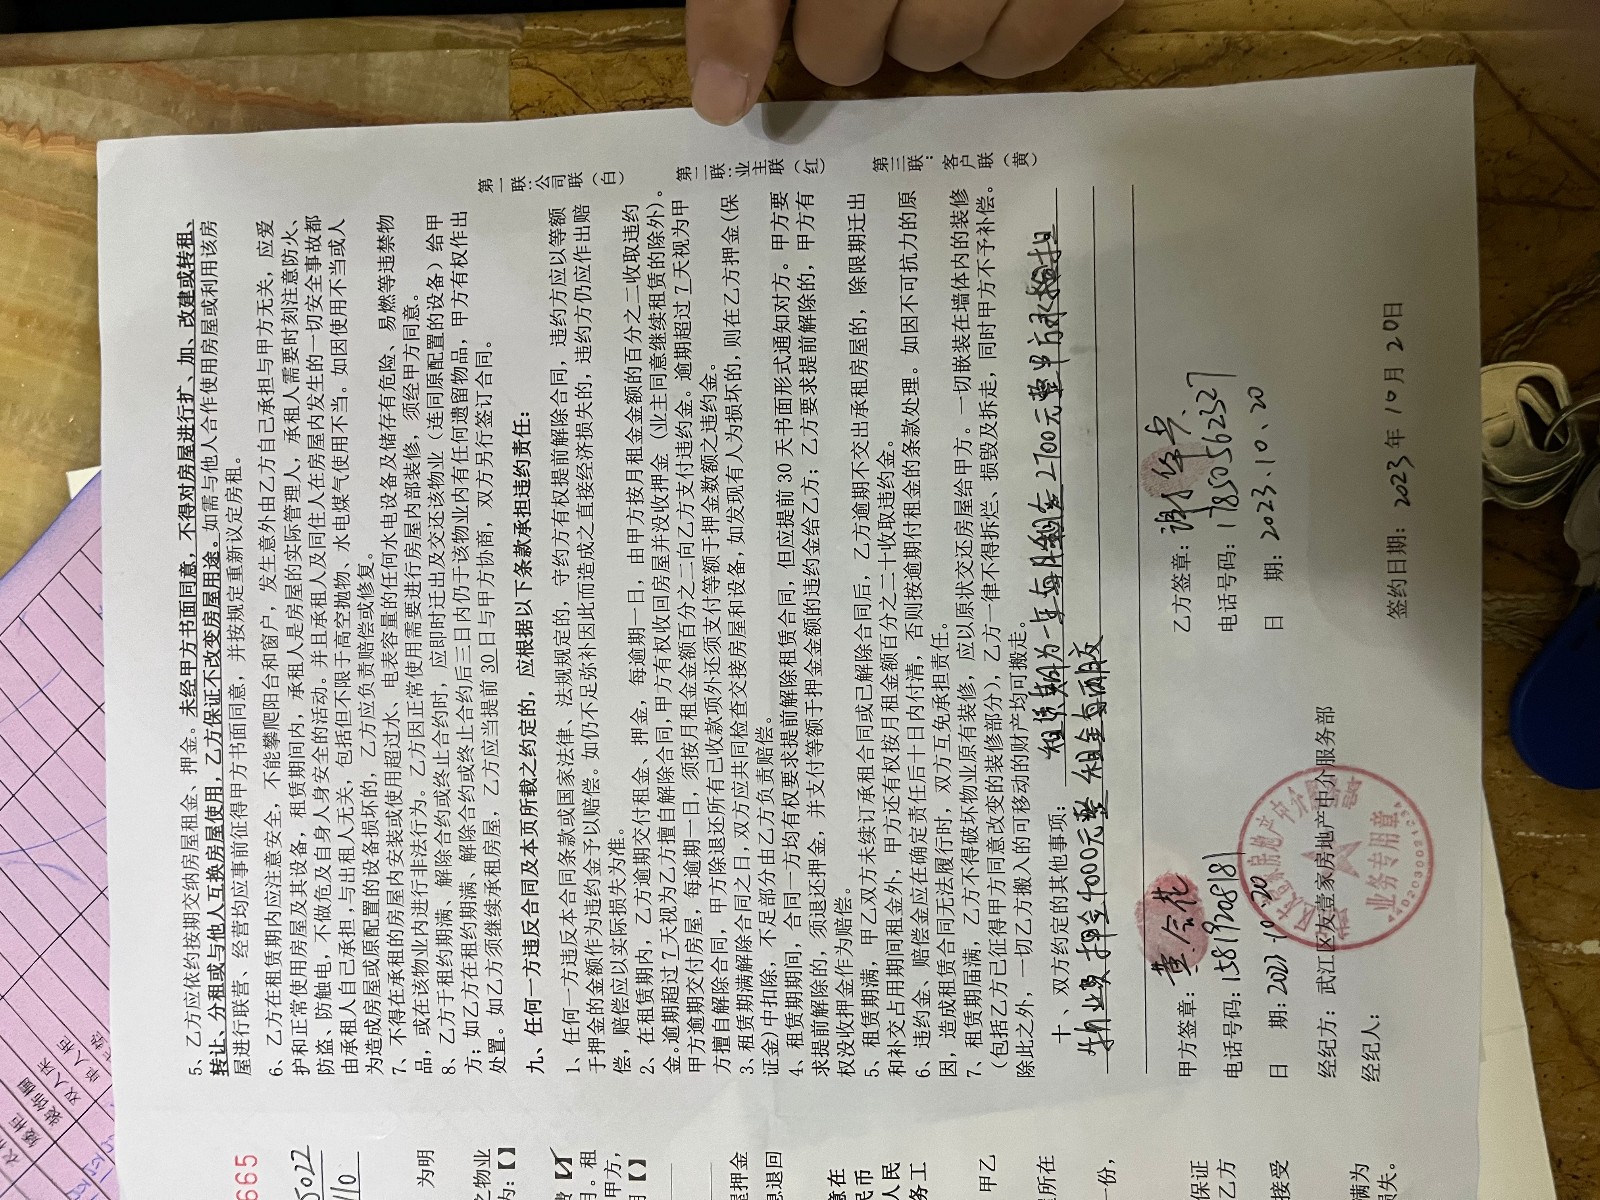 5、乙方应依约按期交纳房屋租金、押金。未经甲方书面同意，不得对房屋进行扩、加、改建或转租、
转让、分租或与他人互换房屋使用，乙方保证不改变房屋用途。如需与他人合作使用房屋或利用该房
屋进行联营、经营均应事前征得甲方书面同意，并按规定重新议定房租。
6、乙方在租赁期内应注意安全，不能攀爬阳台和窗户，发生意外由乙方自己承担与甲方无关，应爱
护和正常使用房屋及其设备，租赁期间内，承租人是房屋的实际管理人，承租人需要时刻注意防火、
防盗、防触电，不做危及自身人身安全的活动。并且承租人及同住人在房屋内发生的一切安全事故都
由承租人自己承担，与出租人无关，包括但不限于高空抛物、水电煤气使用不当。如因使用不当或人
为造成房屋或原配置的设备损坏的，乙方应负责赔偿或修复。
7、不得在承租的房屋内安装或使用超过水、电表容量的任何水电设备及储存有危险、易燃等违禁物
品，或在该物业内进行非法行为。乙方因正常使用需要进行房屋内部装修，须经甲方同意。
8、乙方于租约期满、解除合约或终止合约时，应即时迁出及交还该物业（连同原配置的设备）给甲
方；如乙方在租约期满、解除合约或终止合约后三日内仍于该物业内有任何遗留物品，甲方有权作出
处置。如乙方须继续承租房屋，乙方应当提前 30 日与甲方协商，双方另行签订合同。
九、任何一方违反合同及本页所载之约定的，应根据以下条款承担违约责任：
1、任何一方违反本合同条款或国家法律、法规规定的，守约方有权提前解除合同，违约方应以等额
于押金的金额作为违约金予以赔偿。如仍不足弥补因此而造成之直接经济损失的，违约方仍应作出赔
偿，赔偿应以实际损失为准。
2、在租赁期内，乙方逾期交付租金、押金，每逾期一日，由甲方按月租金金额的百分之二收取违约
金。逾期超过 7 天视为乙方擅自解除合同，甲方有权收回房屋并没收押金（业主同意继续租赁的除外）。
甲方逾期交付房屋，每逾期一日，须按月租金金额百分之二向乙方支付违约金。逾期超过 7 天视为甲
方擅自解除合同，甲方除退还所有已收款项外还须支付等额于押金数额之违约金。
3、租赁期满解除合同之日，双方应共同检查交接房屋和设备，如发现有人为损坏的，则在乙方押金（保
证金）中扣除，不足部分由乙方负责赔偿。
4、租赁期期间，合同一方均有权要求提前解除租赁合同，但应提前 30 天书面形式通知对方。甲方要
求提前解除的，须退还押金，并支付等额于押金金额的违约金给乙方；乙方要求提前解除的，甲方有
权没收押金作为赔偿。
5、租赁期满，甲乙双方未续订承租合同或已解除合同后，乙方逾期不交出承租房屋的，除限期迁出
和补交占用期间租金外，甲方还有权按月租金额百分之二十收取违约金。
6、违约金、赔偿金应在确定责任后十日内付清，否则按逾期付租金的条款处理。如因不可抗力的原
因，造成租赁合同无法履行时，双方互免承担责任。
7、租赁期届满，乙方不得破坏物业原有装修，应以原状交还房屋给甲方。一切嵌装在墙体内的装修
（包括乙方已征得甲方同意改变的装修部分），乙方一律不得拆烂、损毁及拆走，同时甲方不予补偿。
除此之外，一切乙方搬入的可移动的财产均可搬走。
十、双方约定的其他事项：租赁期为一年每月租金2700元整甲方承担
物业费 押金4000元整 租金
甲方签章：黄会花
电话号码：15819208181
日 期：2023.10.20
乙方签章：谢华兵
电话号码：17850562327
日 期：2023.10.20
经纪方：武江区友壹家房地产中介服务部
经纪人：
签约日期：2023 年 10 月 20 日
业务专用章
第一联：公司联（白）
第二联：业主联（红）
第三联：客户联（黄）
665
5022
110
为明
物业
为：【】
月。租
甲方，
押金
息退回
意在
民币
人民
务工
甲乙
所在
一份，
保证
乙方
接受
满为
损失。
双人床
装饰橱
矮柜